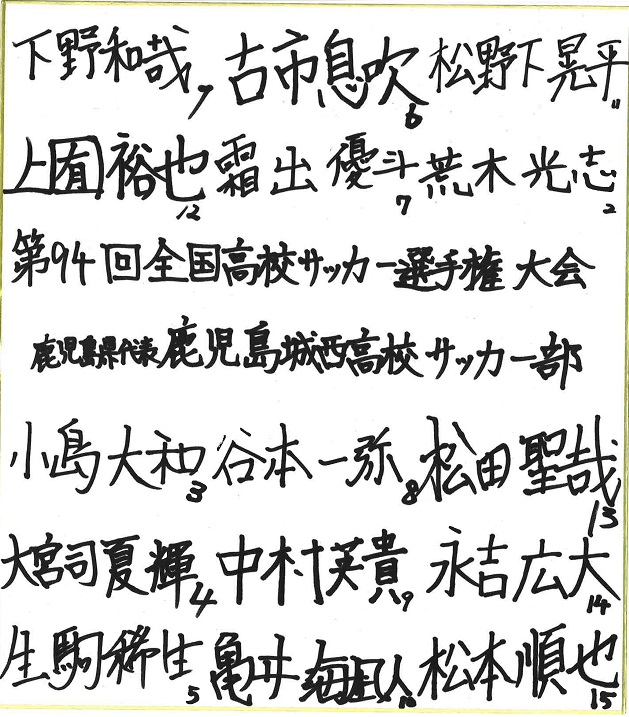 下野和哉 7 古市息吹 6 松野下晃平 11
上囿裕也 12 霜出優斗 7 荒木光志 2
第94回全国高校サッカー選手権大会
鹿児島県代表鹿児島城西高校サッカー部
小島大和 3 谷本一弥 8 松田聖哉 13
大宮司夏輝 4 中村英貴 9 永吉広大 14
生駒稀生 5 亀井 10 松本順也 15